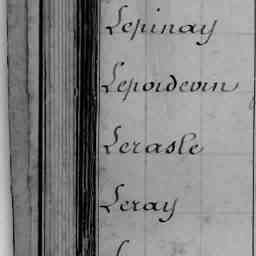 Lepinay
Lepoidevin
Lerasle
Leray